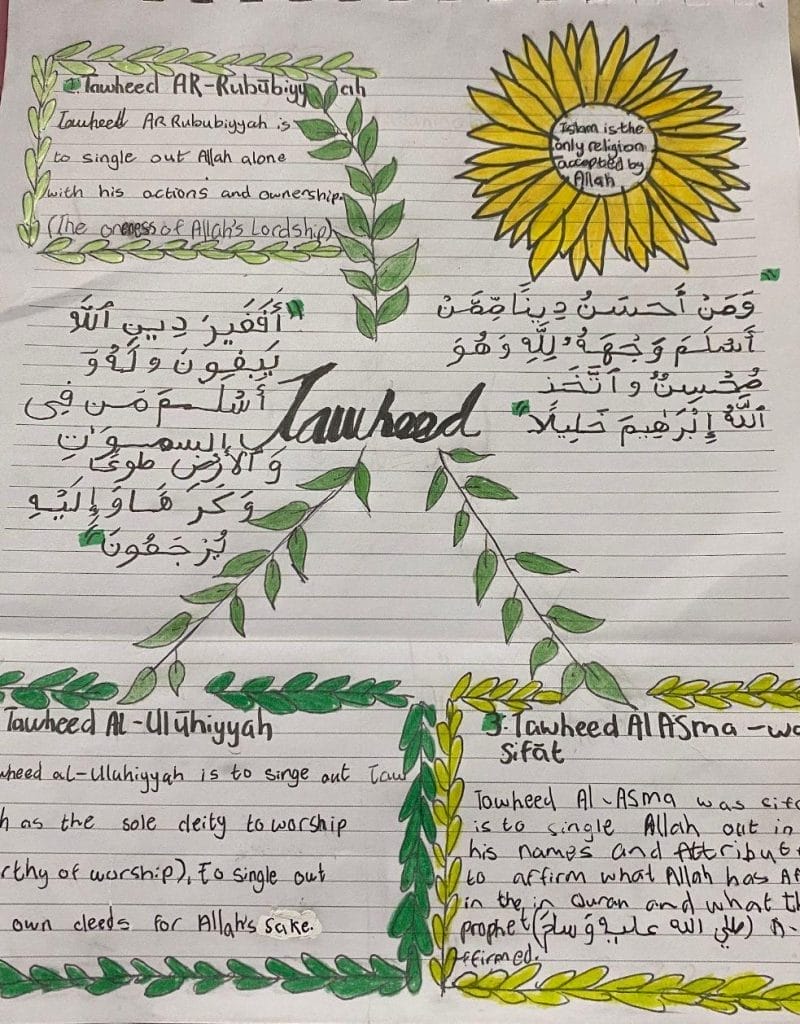 1. Tawheed AR-Rubūbiyyah
Tawheed AR Rububiyyah is
to single out Allah alone
with his actions and ownership.
(The oneness of Allah's Lordship)
Islam is the
only religion
accepted by
Allah
وَمَنْ أَحسَنُ دِينًا مِّمَّنْ
أَسْلَمَ وَجْهَهُ لِلَّهِ وَهُوَ
مُحْسِنٌ وٱتَّخَذَ
ٱللَّهُ إِبْرَٰهِيمَ خَلِيلًا
أَفَغَيرَ دِينِ ٱللَّهِ
يَبغُونَ وَلَهُ وَ
أَسْلَمَ مَن فِى
السموَٰتِ
وَٱلأَرْضِ طوعًا
وَكَرهَاوَإِلَيْهِ
يُرْجَعُونَ
Tawheed
Tawheed Al-Ulūhiyyah
wheed al-Uluhiyyah is to singe out Taw
h as the sole deity to worship
rthy of worship), to single out
own deeds for Allah's sake.
3. Tawheed Al ASma - wa
Sifāt
Tawheed Al-ASma was sifa
is to single Allah out in
his names and Attribut
to affirm what Allah has Af
in the in Quran and what th
prophet (صلي الله عليه وسلم) A-
ffirmed.